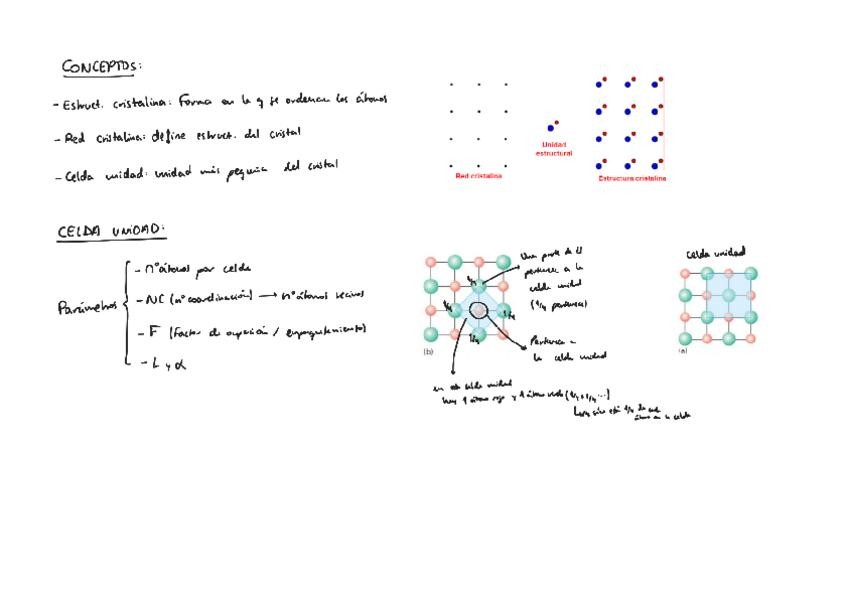 CONCEPTOS:
- Estruct. cristalina: Forma en la q se ordenan los átomos
- Red cristalina: define estruct. del cristal
- Celda unidad: unidad más pequeña del cristal
Red cristalina
Unidad
estructural
Estructura cristalina
CELDA UNIDAD:
Parámetros
- nº átomos por celda
- NC (nº coordinación) → nº átomos vecinos
- F (factor de ocupación / empaquetamiento)
- L y α
1/4
1/4
1/4
1/4
(b)
Una parte de él
pertenece a la
celda unidad
(1/4 pertenece)
Pertenece a
la celda unidad
en esta celda unidad
hay 1 átomo rojo y 1 átomo verde (1/4+1/4...)
1/4 de cada
átomo en la celda
celda unidad
(a)